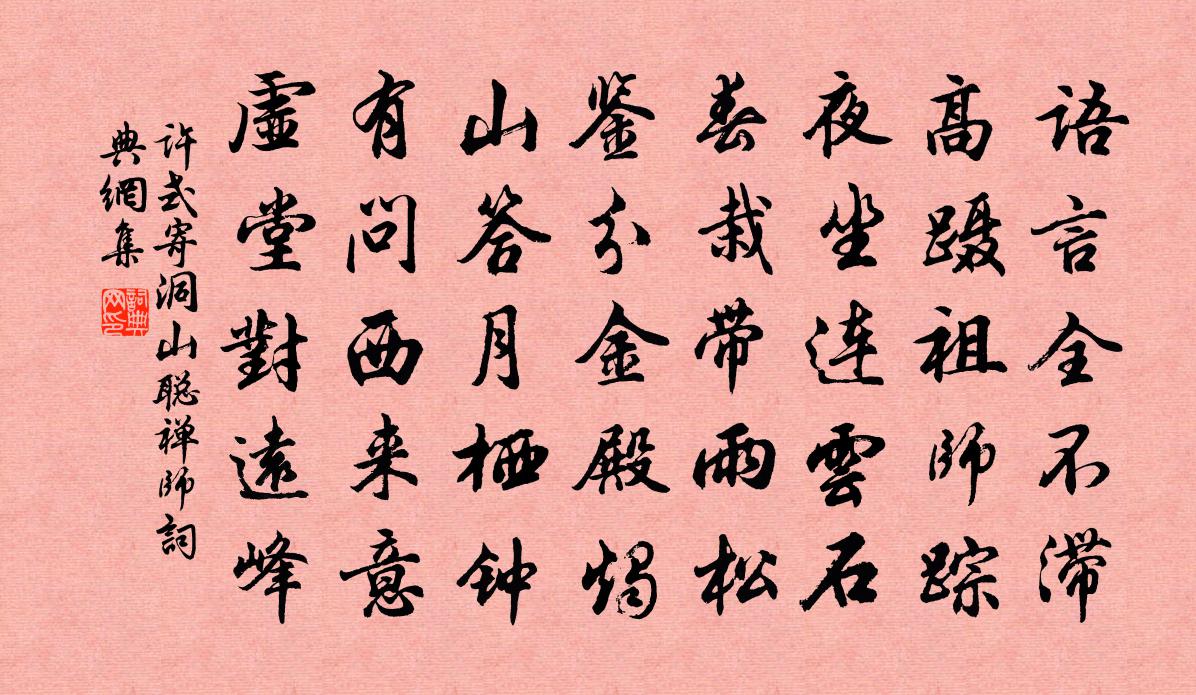 语言全不滞
高蹑祖师踪
夜坐连雲石
春栽带雨松
鉴分金殿烛
山答月栖钟
有问西来意
虚堂對遠峰
许式寄洞山聪禅师詞
典網集
詞典网印